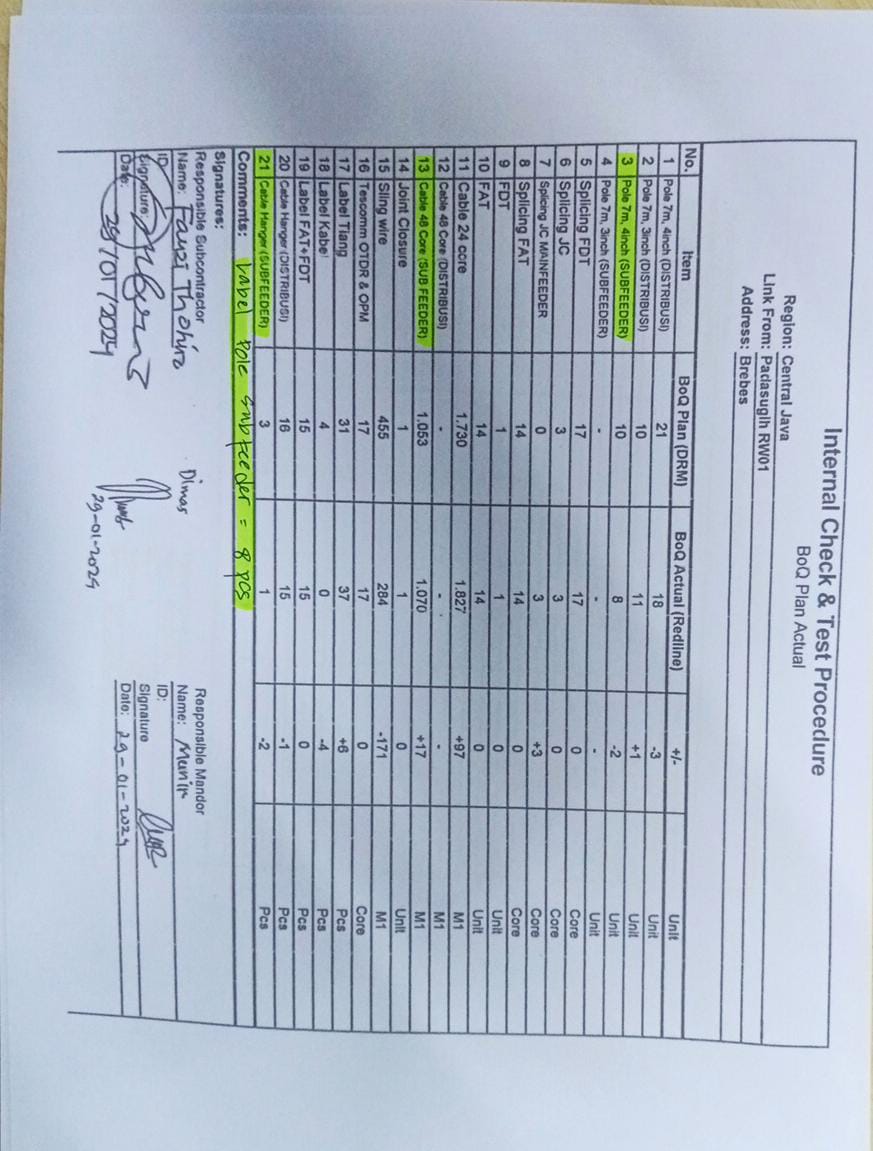 Internal Check & Test Procedure
BoQ Plan Actual
Region: Central Java
Link From: Padasugih RW01
Address: Brebes
No. Item BoQ Plan (DRM) BoQ Actual (Redline) +/- Unit
1 Pole 7m, 4inch (DISTRIBUSI) 21 18 -3 Unit
2 Pole 7m, 3inch (DISTRIBUSI) 10 11 +1 Unit
3 Pole 7m, 4inch (SUBFEEDER) 10 8 -2 Unit
4 Pole 7m, 3inch (SUBFEEDER) - - - Unit
5 Splicing FDT 17 17 0 Core
6 Splicing JC 3 3 0 Core
7 Splicing JC MAINFEEDER 0 3 +3 Core
8 Splicing FAT 14 14 0 Core
9 FDT 1 1 0 Unit
10 FAT 14 14 0 Unit
11 Cable 24 core 1.730 1.827 +97 M1
12 Cable 48 Core (DISTRIBUSI) - - - M1
13 Cable 48 Core (SUB FEEDER) 1.053 1.070 +17 M1
14 Joint Closure 1 1 0 Unit
15 Sling wire 455 284 -171 M1
16 Tescomm OTDR & OPM 17 17 0 Core
17 Label Tiang 31 37 +6 Pcs
18 Label Kabel 4 0 -4 Pcs
19 Label FAT+FDT 15 15 0 Pcs
20 Cable Hanger (DISTRIBUSI) 16 15 -1 Pcs
21 Cable Hanger (SUBFEEDER) 3 1 -2 Pcs
Comments: Label Pole Subfeeder = 8 pcs
Signatures:
Responsible Subcontractor
Name: Fauzi
Dimas
ID:
Signature:
Date: 29/01/2024
29-01-2024
Responsible Mandor
Name: Munir
ID:
Signature
Date: 29-01-2024